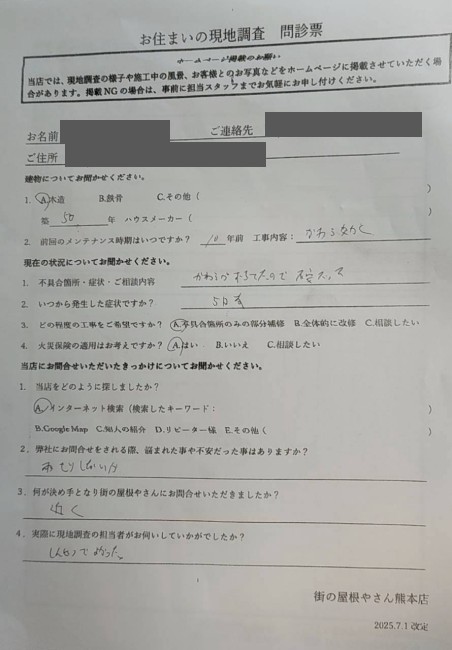 お住まいの現地調査 問診票
ホームページ掲載のお願い
当店では、現地調査の様子や施工中の風景、お客様とのお写真などをホームページに掲載させていただく場
合があります。掲載NGの場合は、事前に担当スタッフまでお気軽にお申し付けください。
お名前 ご連絡先
ご住所
建物についてお聞かせください。
1. A.木造 B.鉄骨 C.その他( )
築 50 年 ハウスメーカー( )
2. 前回のメンテナンス時期はいつですか? 10 年前 工事内容:
現在の状況についてお聞かせください。
1. 不具合箇所・症状・ご相談内容
2. いつから発生した症状ですか? 5日前
3. どの程度の工事をご希望ですか? A.不具合箇所のみの部分補修 B.全体的に改修 C.相談したい
4. 火災保険の適用はお考えですか? A.はい B.いいえ C.相談したい
当店にお問合せいただいたきっかけについてお聞かせください。
1. 当店をどのように探しましたか?
A.インターネット検索(検索したキーワード: )
B.Google Map C.知人の紹介 D.リピーター様 E.その他( )
2. 弊社にお問合せをされる際、悩まれた事や不安だった事はありますか?
3. 何が決め手となり街の屋根やさんにお問合せいただきましたか?
近く
4. 実際に現地調査の担当者がお伺いしていかがでしたか?
街の屋根やさん熊本店
2025.7.1 改定